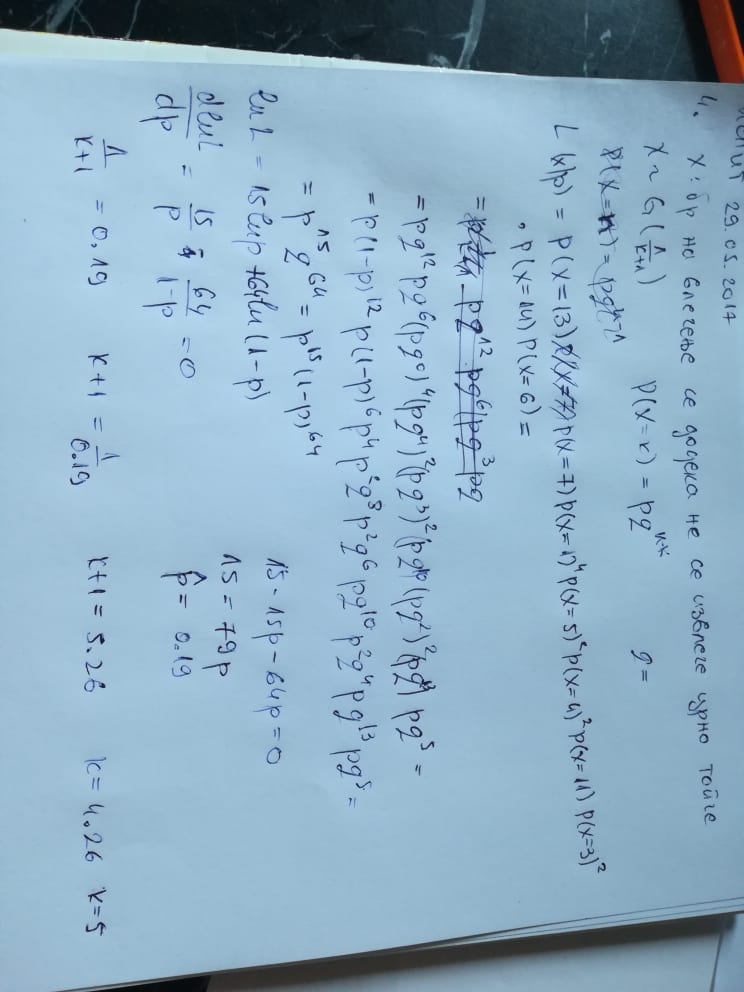 29.05.2017
4. X: бр на влегење се додека не се извлеге црно топге
X ~ G(1/(k+1)) P(X=k) = pq^(k-k) q =
L(x|p) = P(X=13) P(X=7) P(X=1)^4 P(X=5)^2 P(X=4)^2 P(X=11) P(X=3)^2
· P(X=14) P(X=6) =
= pq^12 pq^6 (pq^0)^4 (pq^4)^2 (pq^3)^2 (pq^10 (pq^2)^2 (pq^13) pq^5 =
= p(1-p)^12 p(1-p)^6 p^4 p^2 q^8 p^2 q^6 pq^10 p^2 q^4 pq^13 pq^5 =
= p^15 q^64 = p^15 (1-p)^64
ln L = 15 ln p + 64 ln (1-p)
dlnL/dp = 15/p - 64/(1-p) = 0
15 - 15p - 64p = 0
15 = 79p
p̂ = 0.19
1/(k+1) = 0.19 k+1 = 1/0.19 k+1 = 5.26 k = 4.26 k=5